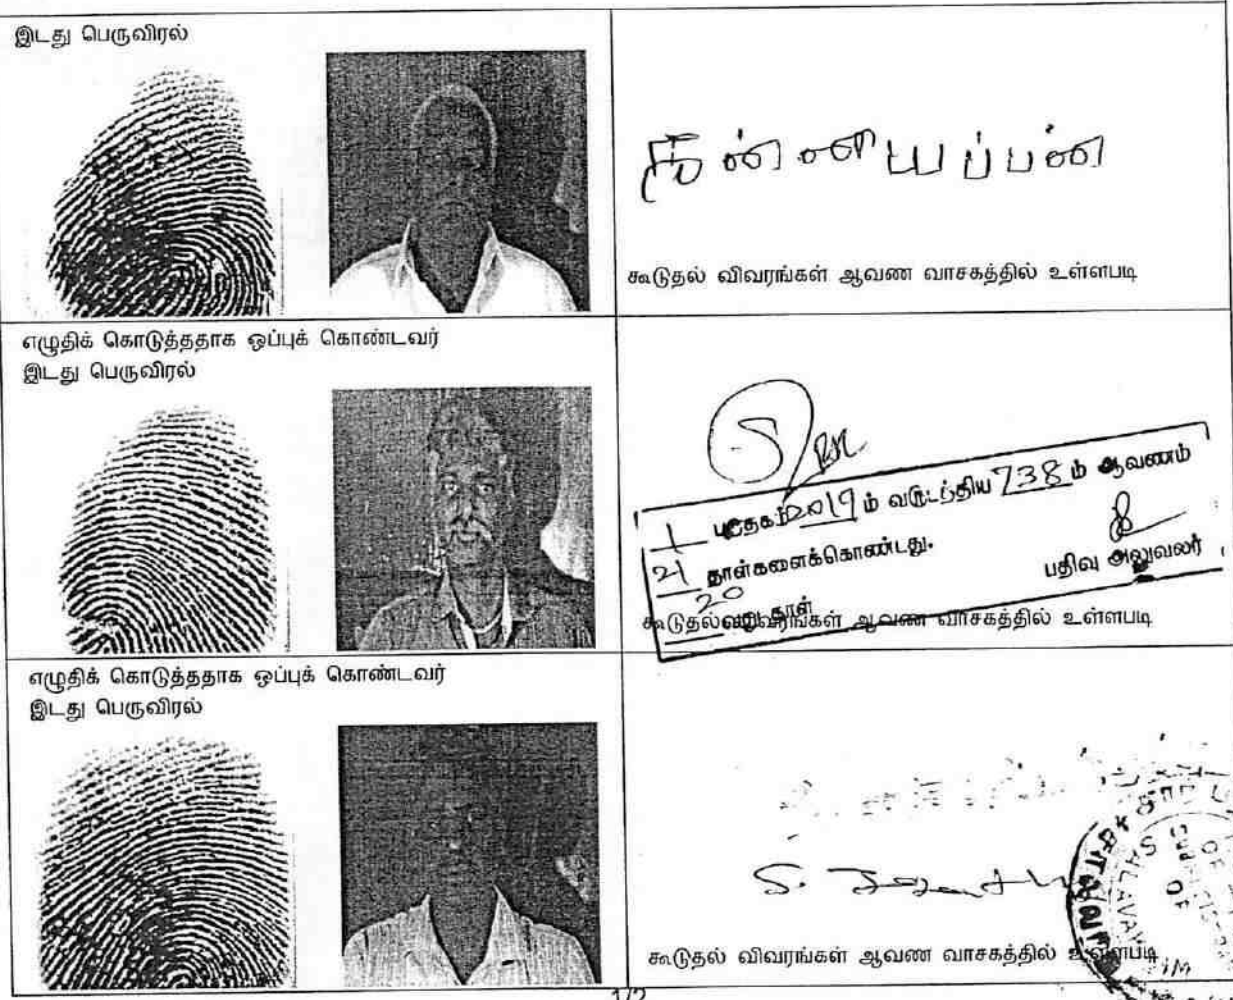 இடது பெருவிரல்
கூடுதல் விவரங்கள் ஆவண வாசகத்தில் உள்ளபடி
எழுதிக் கொடுத்ததாக ஒப்புக் கொண்டவர்
இடது பெருவிரல்
1 புத்தகம் 2019 ம் வருடத்திய 738 ம் ஆவணம்
21 தாள்களைக்கொண்டது.
பதிவு அலுவலர்
20 வது தாள்
கூடுதல் விவரங்கள் ஆவண வாசகத்தில் உள்ளபடி
எழுதிக் கொடுத்ததாக ஒப்புக் கொண்டவர்
இடது பெருவிரல்
S.
கூடுதல் விவரங்கள் ஆவண வாசகத்தில் உள்ளபடி
1/2